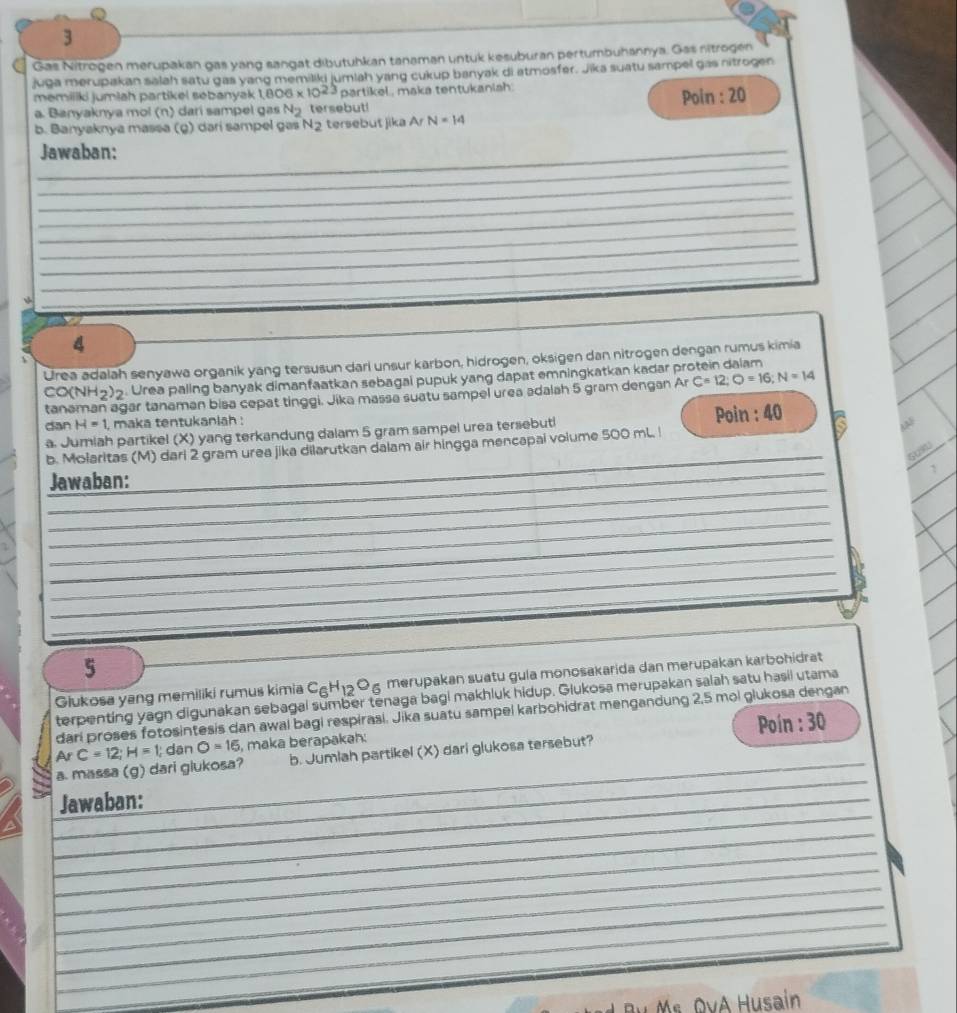 3
Gas Nitrogen merupakan gas yang sangat dibutuhkan tanaman untuk kesuburan pertumbuhannya. Gas nitrogen
juga merupakan salah satu gas yang memiliki jumlah yang cukup banyak di atmosfer. Jika suatu sampel gas nitrogen
memiliki jumlah partikel sebanyak 1,806 x 10²³ partikel, maka tentukanlah:
a. Banyaknya mol (n) dari sampel gas N₂ tersebut!
b. Banyaknya massa (g) dari sampel gas N₂ tersebut jika Ar N = 14
Poin : 20
Jawaban:
4
Urea adalah senyawa organik yang tersusun dari unsur karbon, hidrogen, oksigen dan nitrogen dengan rumus kimia
CO(NH₂)₂. Urea paling banyak dimanfaatkan sebagai pupuk yang dapat emningkatkan kadar protein dalam
tanaman agar tanaman bisa cepat tinggi. Jika massa suatu sampel urea adalah 5 gram dengan Ar C= 12; O = 16; N = 14
dan H = 1, maka tentukanlah :
a. Jumlah partikel (X) yang terkandung dalam 5 gram sampel urea tersebut!
b. Molaritas (M) dari 2 gram urea jika dilarutkan dalam air hingga mencapai volume 500 mL !
Poin : 40
Jawaban:
5
Glukosa yang memiliki rumus kimia C₆H₁₂O₆ merupakan suatu gula monosakarida dan merupakan karbohidrat
terpenting yagn digunakan sebagai sumber tenaga bagi makhluk hidup. Glukosa merupakan salah satu hasil utama
dari proses fotosintesis dan awal bagi respirasi. Jika suatu sampel karbohidrat mengandung 2,5 mol glukosa dengan
Ar C = 12; H = 1; dan O = 16, maka berapakah:
a. massa (g) dari glukosa? b. Jumlah partikel (X) dari glukosa tersebut?
Poin : 30
Jawaban:
By Ms QVA Husain